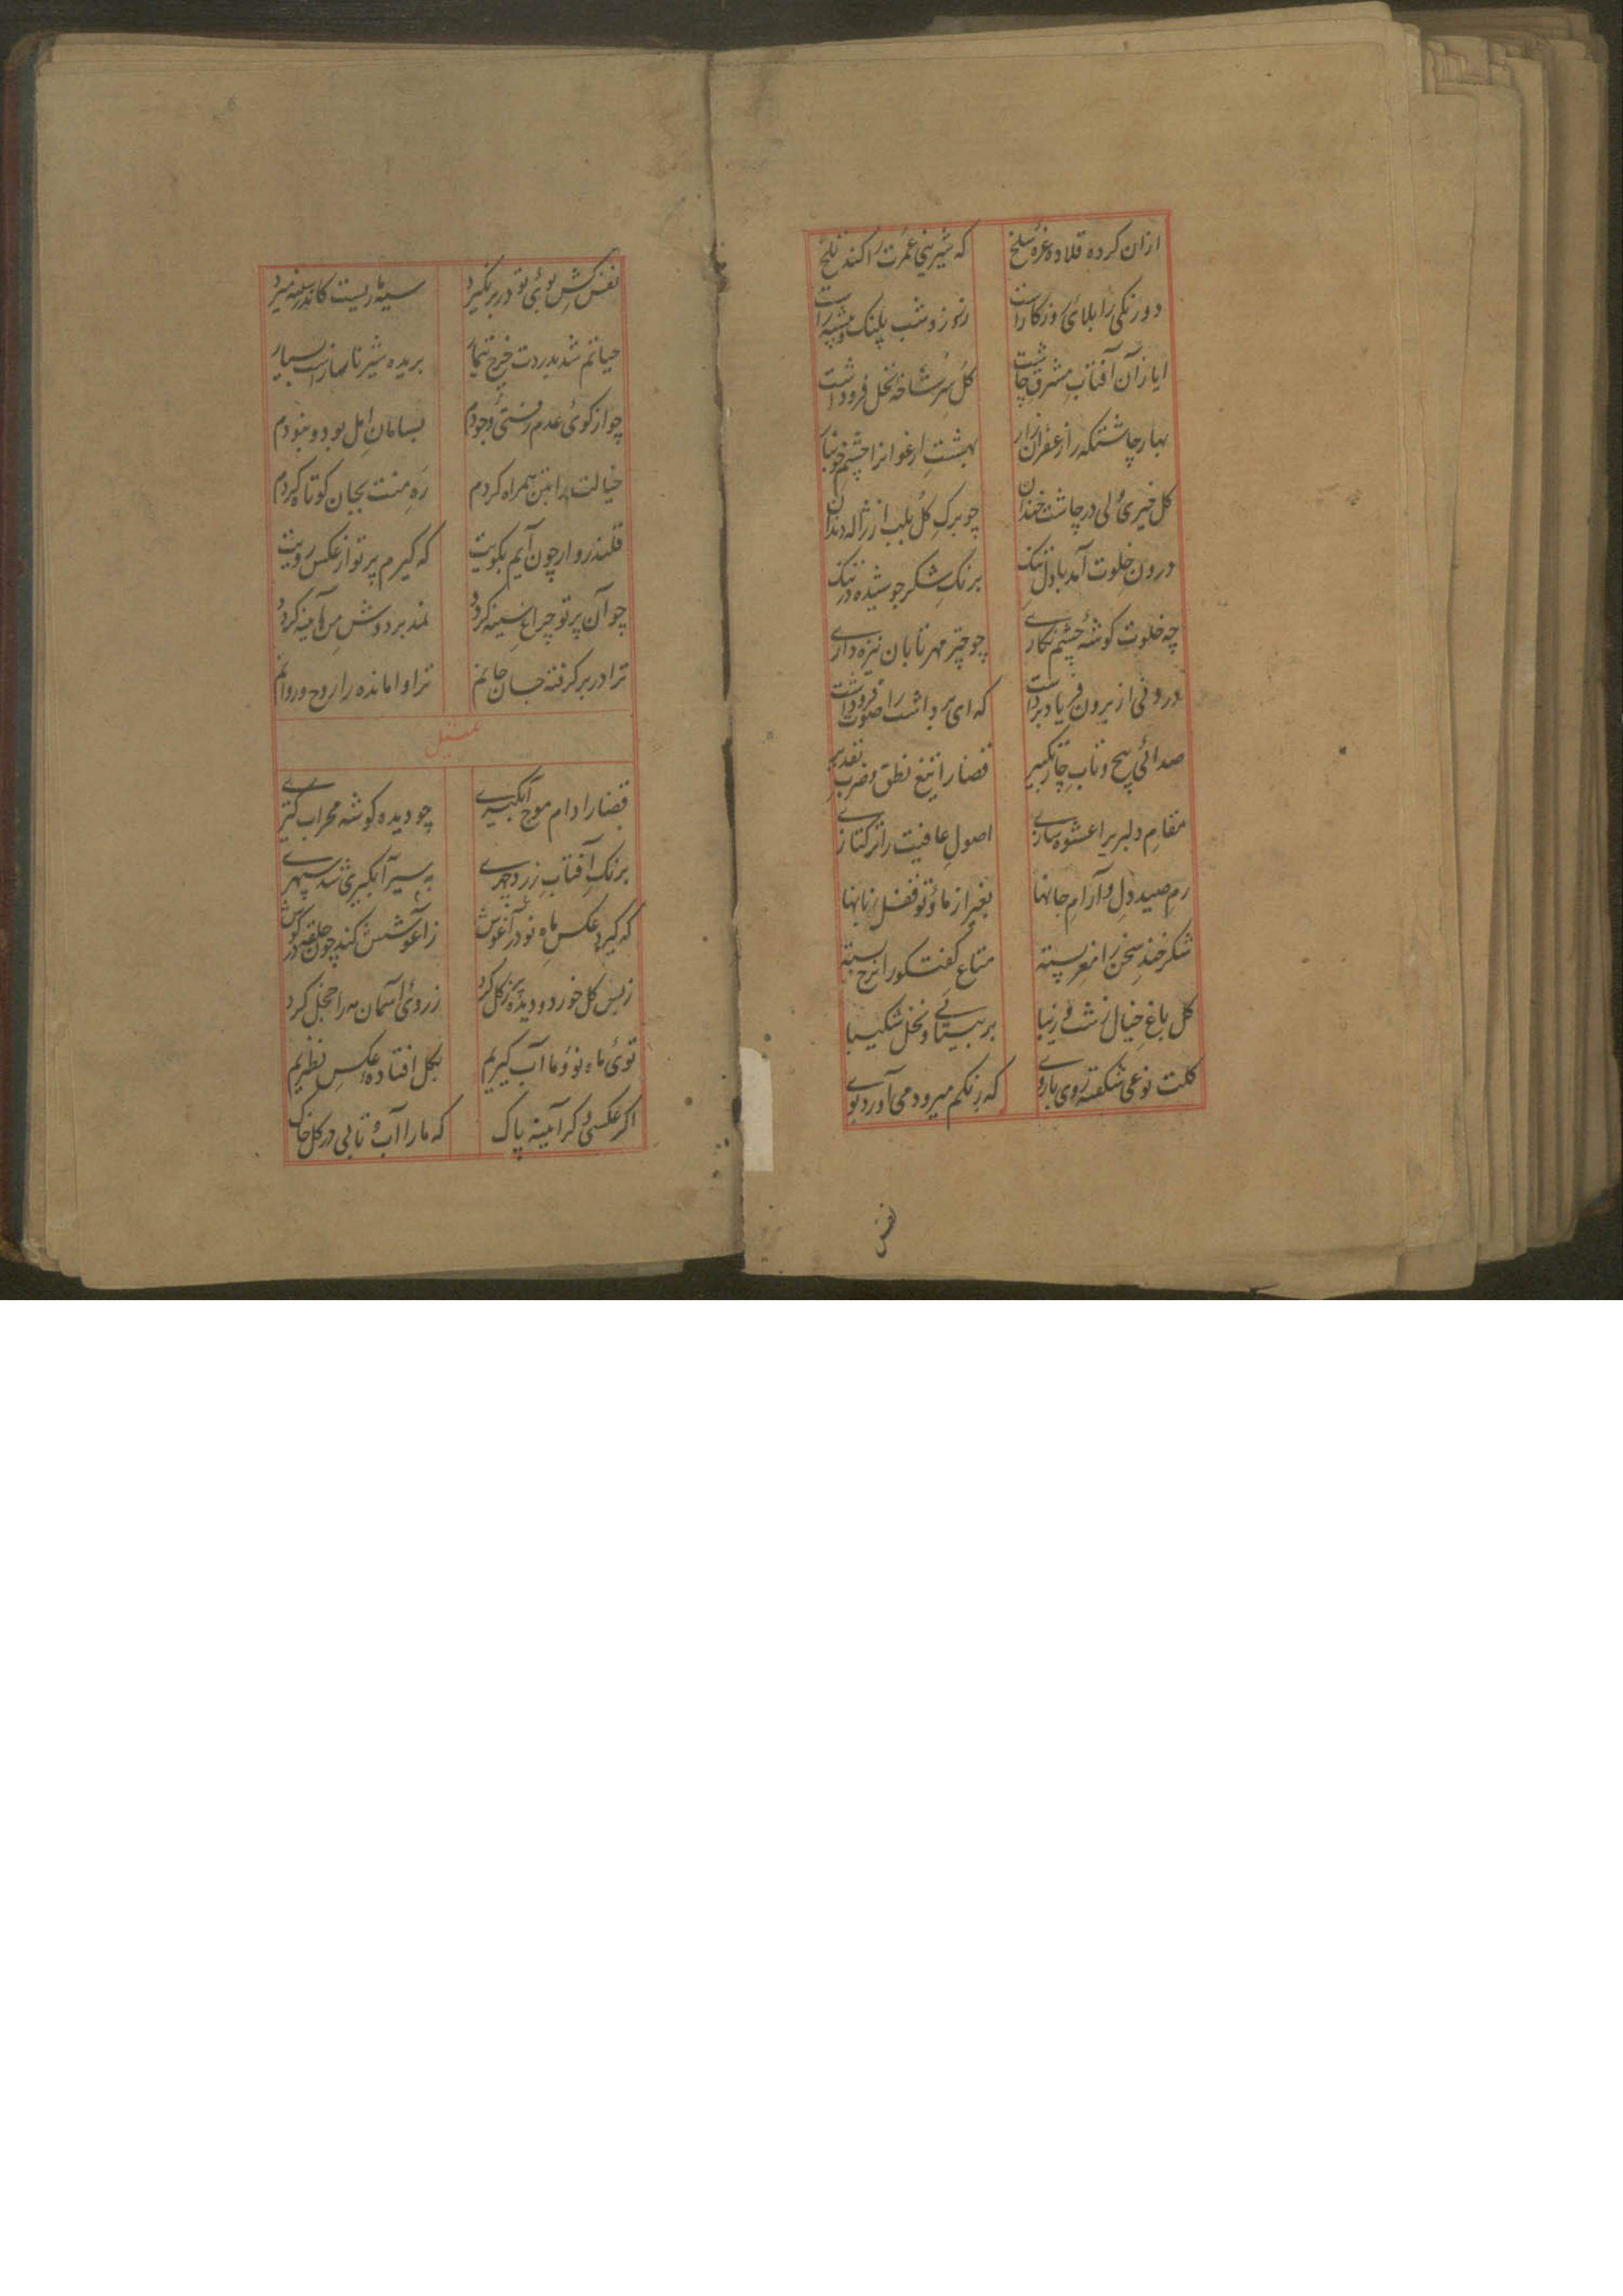 ازان کرده قلاده غره سلخ که شیرینی عمرت را کند تلخ
دو رنکی را بلای روزکار است ز روز و شب پلنک بیشه
ایاز آن آفتاب مشرق چاشت کل سر شاخهٔ نخل فرو داشت
بهار چاشتکه را زعفران زار بهشت ارغوانرا چشم خونبار
کل خیری ولی در چاشت خندان چو برک کل بلب از ژاله دندان
درون خلوت آمد با دل تنک برنک شکر جوشیده در تنک
چه خلوت کوشهٔ چشم نکاری چو چتر مهر تابان نیزه داری
درونی از برون فریاد برداشت که ای برداشت را صوت فروداشت
صدائی پیچ و تاب چار تکبیر قضا را تیغ نطق و ضرب تقدیر
مقام دلبریرا عشوه سازی اصول عافیت را ترکتازی
رم صید دل و آرام جانها بغیر از ما و تو قفل زبانها
شکر خند سخن را مغز پسته متاع کفتکو را نرخ بسته
کل باغ خیال زشت و زیبا بر بینائی و نخل شکیبا
کلت نوعی شکفته روی باروی که رنکم میرود می آورد بوی
نفس
نفس کش بوی تو در بر نکیرد سیه ماریست کاندر سینه میرد
حیاتم شد بدردت خرج تیمار بریده شیر نا بهار است بسیار
چو از کوی عدم رستی وجودم بسامان امل بود و نبودم
خیالت را بتن همراه کردم ره منت بجان کوتاه کردم
قلندروار چون آیم بکویت که کیرم پرتو از عکس رویت
چو آن پرتو چراغ سینه کردد نمد بر دوش من آیینه کردد
ترا در بر کرفته جسان جانم ترا وامانده را روح و روانم
تمثیل
قضا را دام موج آبکیری چو دیده کوشه محراب
برنک آفتاب زرد چهری به سیر آبکیری شد سپهری
که کیرد عکس ماه نو در آغوش ز آغوشش کند چون حلقه در کوش
ز بس کل خورد و دیده پر ز کل کرد ز روی آسمان مه را خجل کرد
توئی ماه نو و ما آب کیریم بکل افتاده عکس نظیریم
اکر عکسی و کر آیینه پاک که ما را آب و تابی در کل خاک